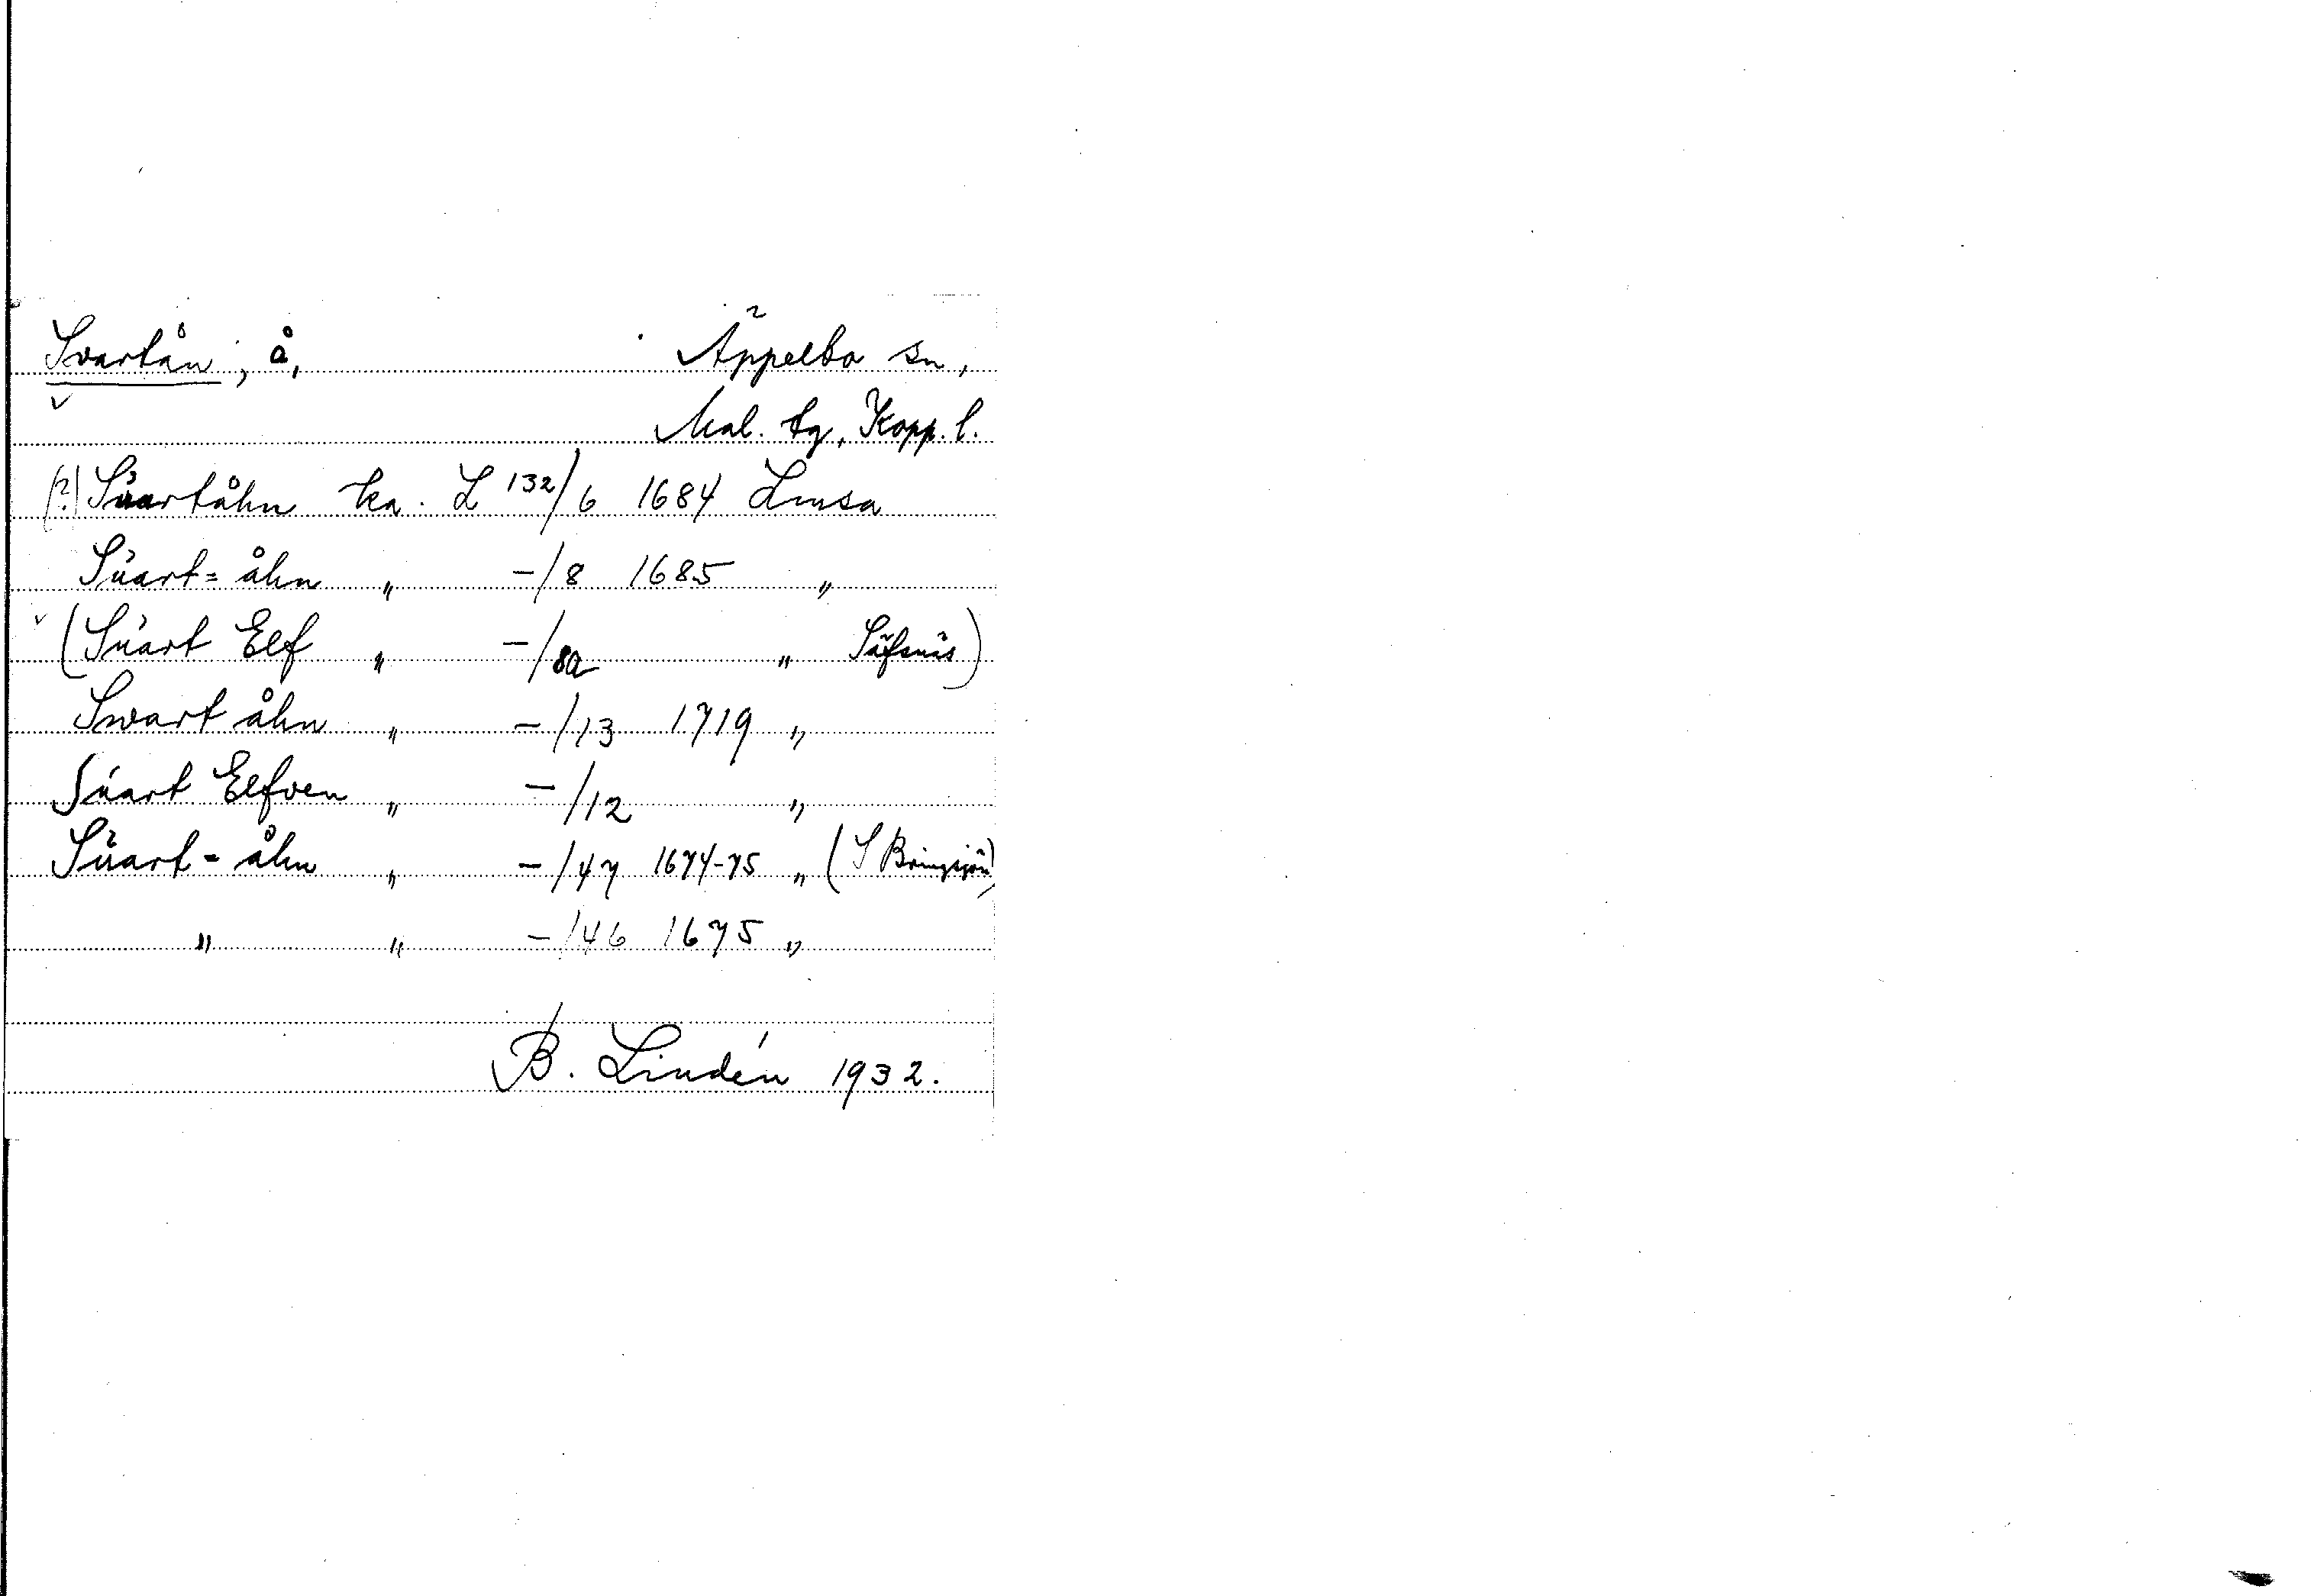 Svartån, å, Äppelbo sn,
Mal. tg, Kopp. l.
(?) Süartåhn ka. L 132/6 1684 Lmsa
Süart=åhn " -/8 1685 "
(Süart Elf " -/8a " Säfsnäs)
Swart åhn " -/13 1719 "
Süart Elfven " -/12 "
Süart=åhn " -/47 1674-75 " (S Bringsjön)
" " -/46 1675 "
B. Lindén 1932.